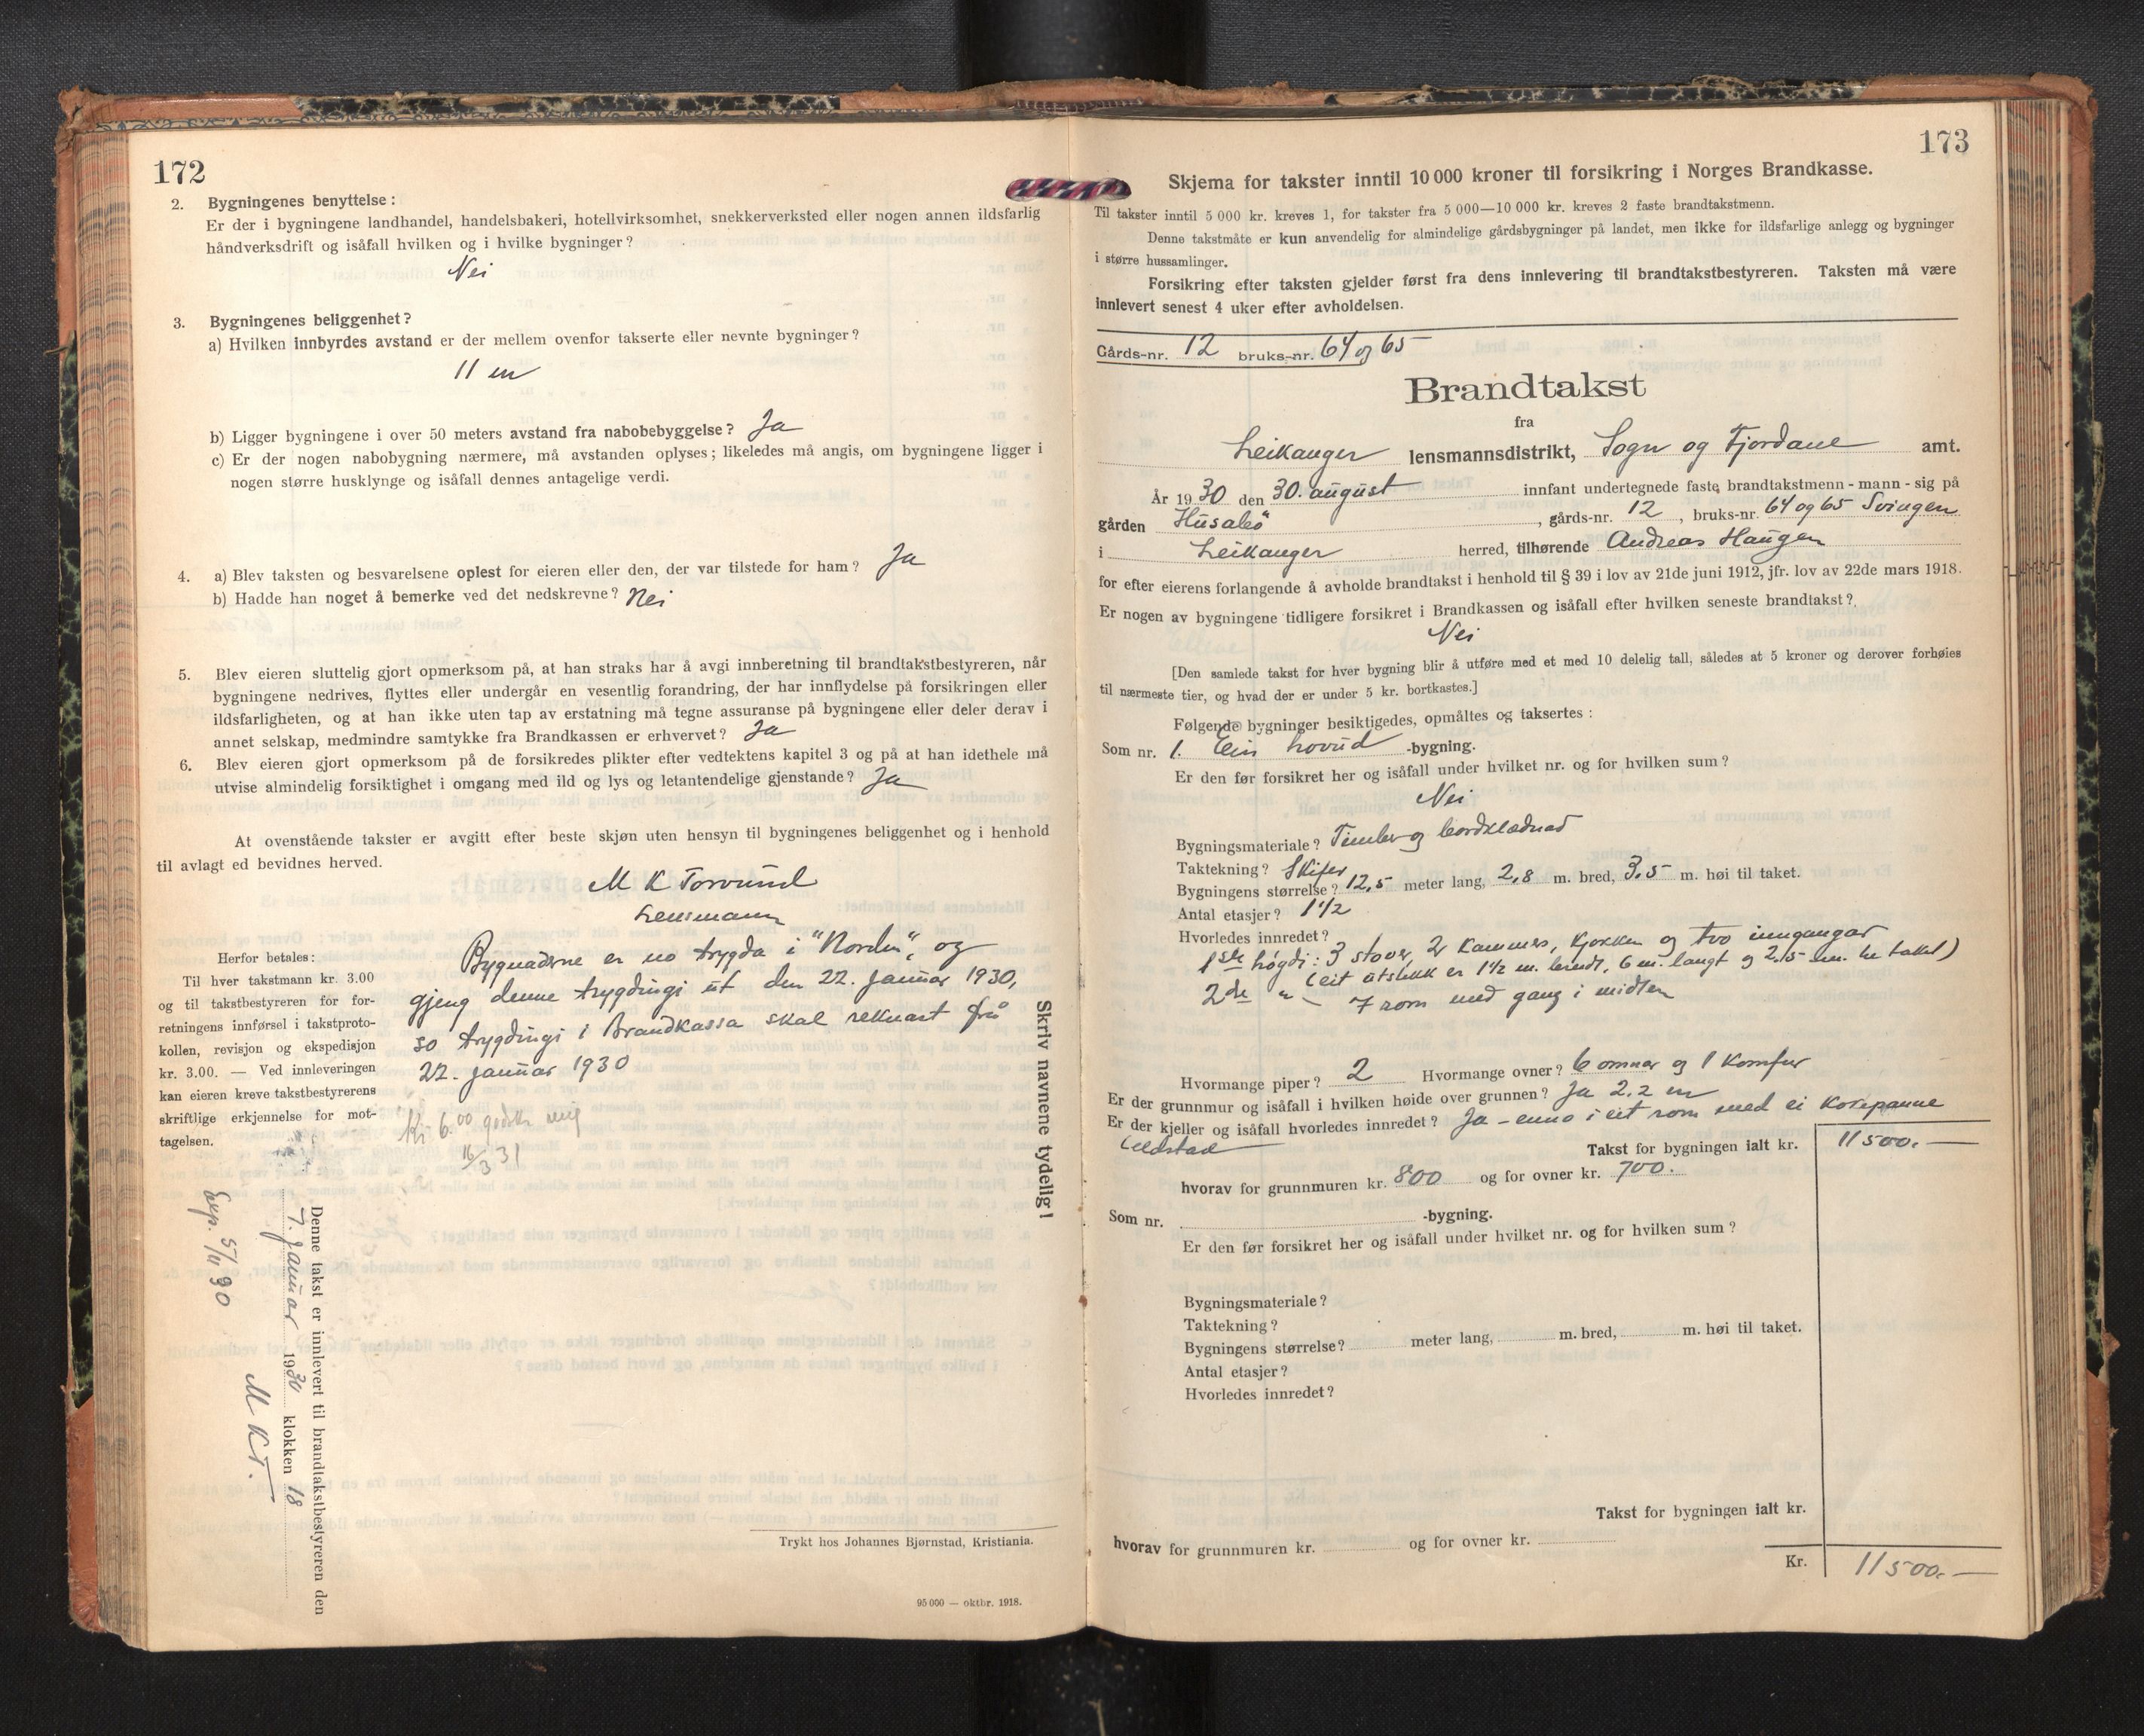 172
2. Bygningenes benyttelse:
Er der i bygningene landhandel, handelsbakeri, hotellvirksomhet, snekkerverksted eller nogen annen ildsfarlig
håndverksdrift og isåfall hvilken og i hvilke bygninger?
Nei
3. Bygningenes beliggenhet?
a) Hvilken innbyrdes avstand er der mellem ovenfor takserte eller nevnte bygninger?
11 m
b) Ligger bygningene i over 50 meters avstand fra nabobebyggelse? Ja
c) Er der nogen nabobygning nærmere, må avstanden oplyses; likeledes må angis, om bygningene ligger i
nogen større husklynge og isåfall dennes antagelige verdi.
4. a) Blev taksten og besvarelsene oplest for eieren eller den, der var tilstede for ham? Ja
b) Hadde han noget å bemerke ved det nedskrevne? Nei
5. Blev eieren sluttelig gjort opmerksom på, at han straks har å avgi innberetning til brandtakstbestyreren, når
bygningene nedrives, flyttes eller undergår en vesentlig forandring, der har innflydelse på forsikringen eller
ildsfarligheten, og at han ikke uten tap av erstatning må tegne assuranse på bygningene eller deler derav i
annet selskap, medmindre samtykke fra Brandkassen er erhvervet? Ja
6. Blev eieren gjort opmerksom på de forsikredes plikter efter vedtektens kapitel 3 og på at han idethele må
utvise almindelig forsiktighet i omgang med ild og lys og letantendelige gjenstande? Ja
At ovenstående takster er avgitt efter beste skjøn uten hensyn til bygningenes beliggenhet og i henhold
til avlagt ed bevidnes herved.
M K Torvund
Lensmann
Bygnaderne er no trygda i "Norden", og
gjeng denne trygdingi ut den 22. januar 1930,
so trygdingi i Brandkassa skal reknast frå
22. januar 1930
Kr 6.00 godkr mig
16/3 31
Herfor betales:
Til hver takstmann kr. 3.00
og til takstbestyreren for for-
retningens innførsel i takstproto-
kollen, revisjon og ekspedisjon
kr. 3.00. — Ved innleveringen
kan eieren kreve takstbestyrerens
skriftlige erkjennelse for mot-
tagelsen.
Skriv navnene tydelig!
Denne takst er innlevert til brandtakstbestyreren den
7. januar 1930 klokken 18
M K T.
Exp. 5/11 30
Trykt hos Johannes Bjørnstad, Kristiania.
95 000 — oktbr. 1918.
173
Skjema for takster inntil 10 000 kroner til forsikring i Norges Brandkasse.
Til takster inntil 5 000 kr. kreves 1, for takster fra 5 000—10 000 kr. kreves 2 faste brandtakstmenn.
Denne takstmåte er kun anvendelig for almindelige gårdsbygninger på landet, men ikke for ildsfarlige anlegg og bygninger
i større hussamlinger.
Forsikring efter taksten gjelder først fra dens innlevering til brandtakstbestyreren. Taksten må være
innlevert senest 4 uker efter avholdelsen.
Gårds-nr. 12 bruks-nr. 64 og 65
Brandtakst
fra
Leikanger lensmannsdistrikt, Sogn og Fjordane amt.
År 1930 den 30. august innfant undertegnede faste brandtakstmenn - mann - sig på
gården Husabø, gårds-nr. 12, bruks-nr. 64 og 65 Svingen
i Leikanger herred, tilhørende Andreas Haugen
for efter eierens forlangende å avholde brandtakst i henhold til § 39 i lov av 21de juni 1912, jfr. lov av 22de mars 1918.
Er nogen av bygningene tidligere forsikret i Brandkassen og isåfall efter hvilken seneste brandtakst?
Nei
[Den samlede takst for hver bygning blir å utføre med et med 10 delelig tall, således at 5 kroner og derover forhøies
til nærmeste tier, og hvad der er under 5 kr. bortkastes.]
Følgende bygninger besiktigedes, opmåltes og taksertes:
Som nr. 1. Ein hovud -bygning.
Er den før forsikret her og isåfall under hvilket nr. og for hvilken sum?
Nei
Bygningsmateriale? Timber og bordklædnad
Taktekning? Skifer
Bygningens størrelse? 12,5 meter lang, 2,8 m. bred, 3,5 m. høi til taket.
Antal etasjer? 1½
Hvorledes innredet?
1ste høgdi: 3 stover, 2 kammers, kjøkken og tvo inngangar
(eit utstikk er 1½ m. breidt, 6 m. langt og 2,15 m. til taket)
2de " - 7 rom med gang i midten
Hvormange piper? 2 Hvormange ovner? 6 omnar og 1 komfur
Er der grunnmur og isåfall i hvilken høide over grunnen? Ja 2,2 m
Er der kjeller og isåfall hvorledes innredet? Ja - enno i eit rom med ei korepanne
Eldstad
Takst for bygningen ialt kr. 11500.—
hvorav for grunnmuren kr. 800 og for ovner kr. 700.
Som nr. -bygning.
Er den før forsikret her og isåfall under hvilket nr. og for hvilken sum?
Bygningsmateriale?
Taktekning?
Bygningens størrelse? meter lang, m. bred, m. høi til taket.
Antal etasjer?
Hvorledes innredet?
Takst for bygningen ialt kr.
hvorav for grunnmuren kr. og for ovner kr.
Kr. 11500.—